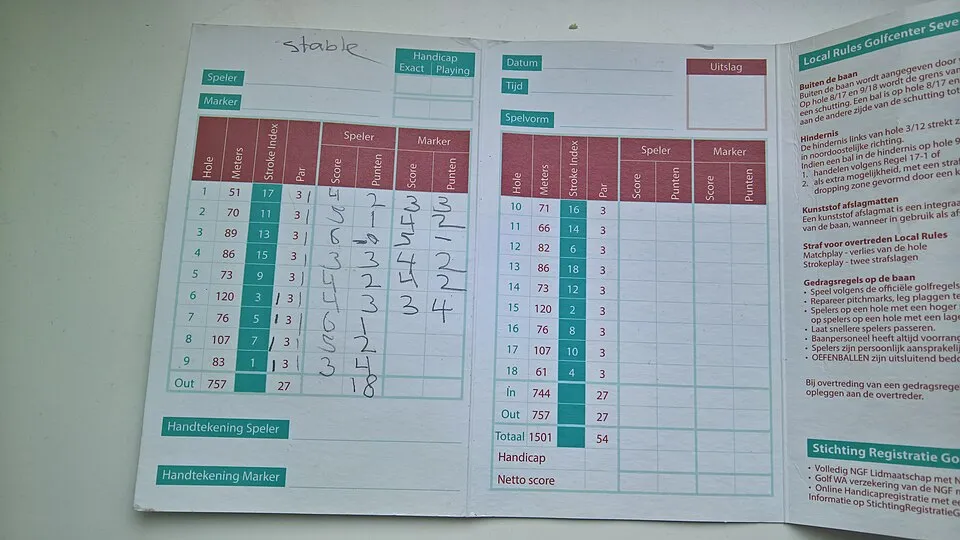 stable
Handicap
Exact Playing
Speler
Marker
Speler Marker
Hole Meters Stroke Index Par Score Punten Score Punten
1 51 17 3 | 4 2 3 3
2 70 11 3 | 5 1 4 2
3 89 13 3 | 6 0 5 1
4 86 15 3 | 3 3 4 2
5 73 9 3 | 4 2 4 2
6 120 3 | 3 | 4 3 3 4
7 76 5 | 3 | 6 1
8 107 7 | 3 | 5 2
9 83 1 | 3 | 3 4
Out 757 27 18
Handtekening Speler
Handtekening Marker
Datum
Tijd
Uitslag
Spelvorm
Speler Marker
Hole Meters Stroke Index Par Score Punten Score Punten
10 71 16 3
11 66 14 3
12 82 6 3
13 86 18 3
14 73 12 3
15 120 2 3
16 76 8 3
17 107 10 3
18 61 4 3
Ín 744 27
Out 757 27
Totaal 1501 54
Handicap
Netto score
Local Rules Golfcenter Seve
Buiten de baan
Buiten de baan wordt aangegeven door
Op hole 8/17 en 9/18 wordt de grens van
een schutting. Een bal is op hole 8/17 en
aan de andere zijde van de schutting tot
Hindernis
De hindernis links van hole 3/12 strekt z
in noordoostelijke richting.
Indien een bal in de hindernis op hole 9
1. handelen volgens Regel 17-1 of
2. als extra mogelijkheid, met een straf
dropping zone gevormd door een k
Kunststof afslagmatten
Een kunststof afslagmat is een integraa
van de baan, wanneer in gebruik als af
Straf voor overtreden Local Rules
Matchplay - verlies van de hole
Strokeplay - twee strafslagen
Gedragsregels op de baan
• Speel volgens de officiële golfregels
• Repareer pitchmarks, leg plaggen te
• Spelers op een hole met een hoger
op spelers op een hole met een lage
• Laat snellere spelers passeren.
• Baanpersoneel heeft altijd voorrang
• Spelers zijn persoonlijk aansprakelij
• OEFENBALLEN zijn uitsluitend bedo
Bij overtreding van een gedragsregel
opleggen aan de overtreder.
Stichting Registratie Go
• Volledig NGF Lidmaatschap met N
• Golf WA verzekering van de NGF n
• Online Handicapregistratie met ee
Informatie op StichtingRegistratieG